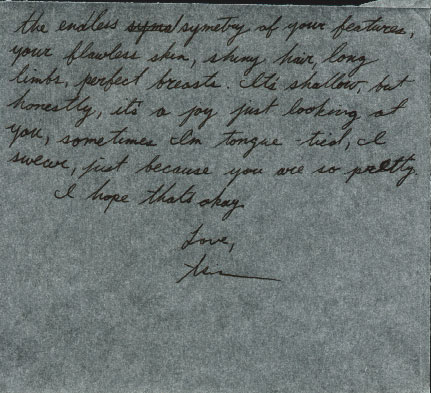 the endless symetry of your features,
your flawless skin, shiny hair, long
limbs, perfect breasts. It's shallow, but
honestly, it's a joy just looking at
you, sometimes I'm tongue-tied, I
swear, just because you are so pretty.
I hope that's okay
Love,